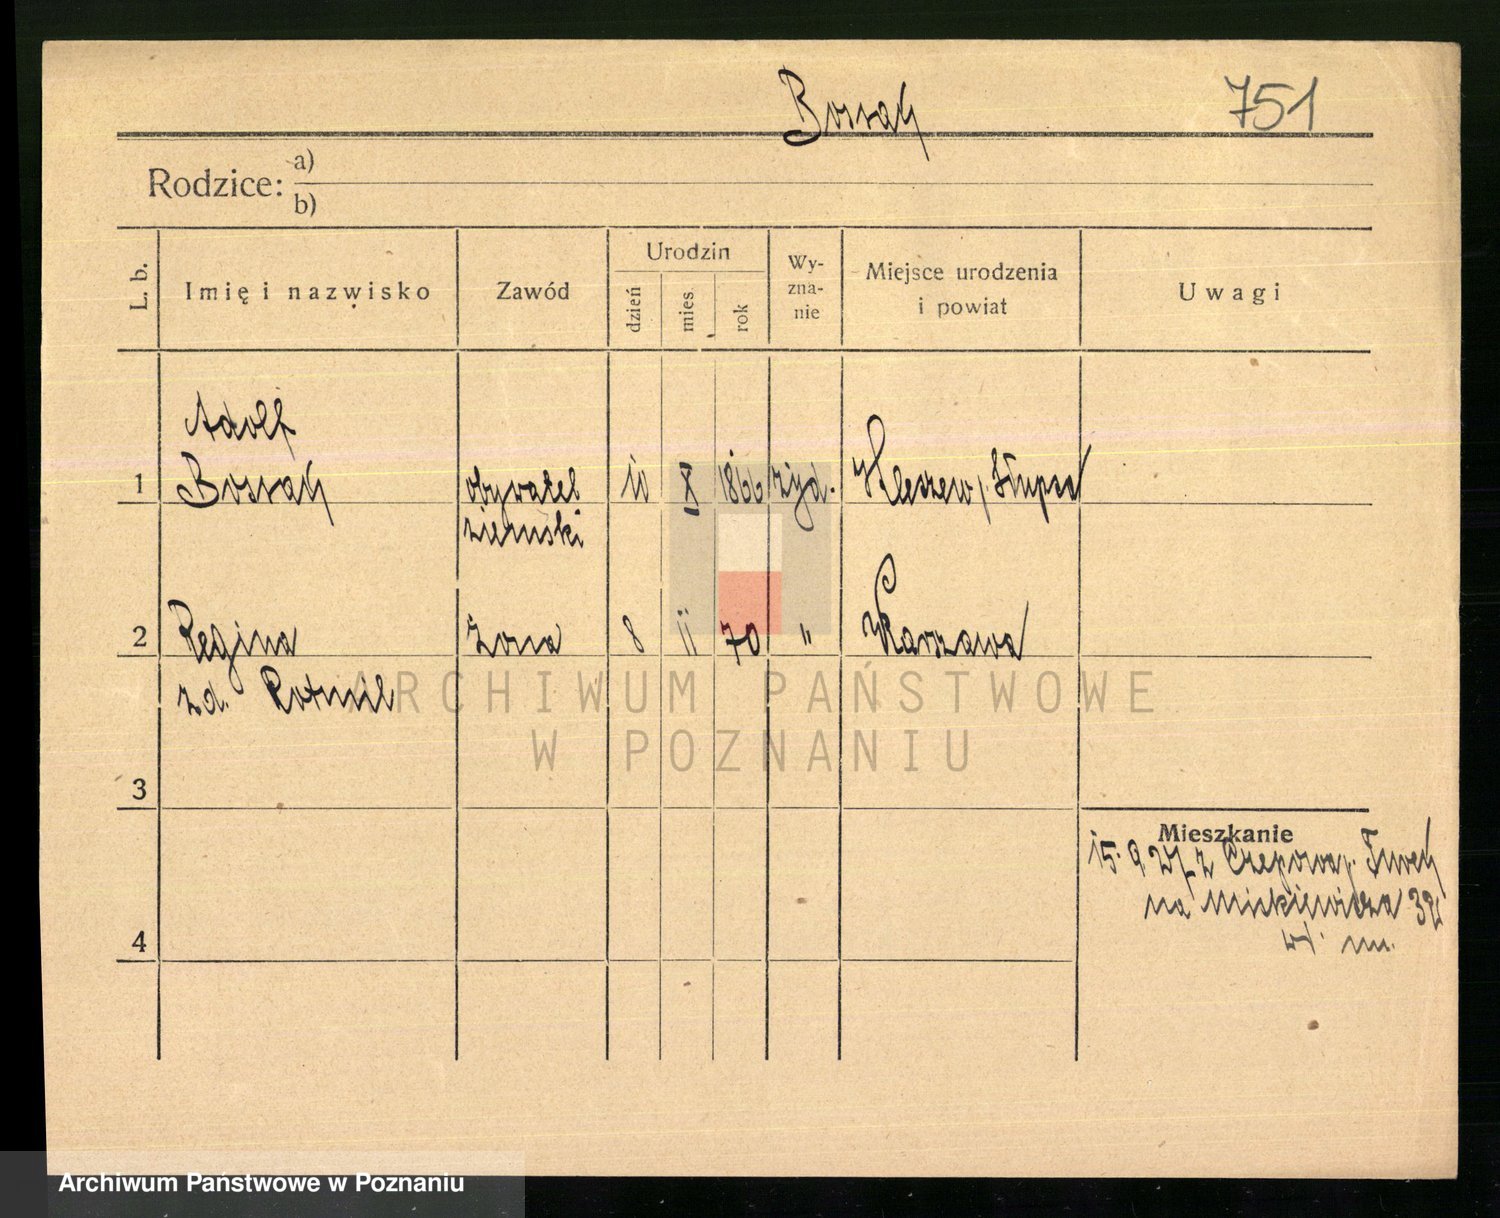 Bossak 751
Rodzice: a)
b)
L. b. Imię i nazwisko Zawód Urodzin dzień mies. rok Wyznanie Miejsce urodzenia i powiat Uwagi
Adolf
1 Bossak obywatel 10 X 1866 żyd. Kleszew, Słupca
ziemski
2 Regina żona 8 II 70 " Warszawa
zd. Rotmil
ARCHIWUM PAŃSTWOWE
W POZNANIU
3
Mieszkanie
15. 9. 27 z p. Turek
na Mickiewicza 32
4
Archiwum Państwowe w Poznaniu